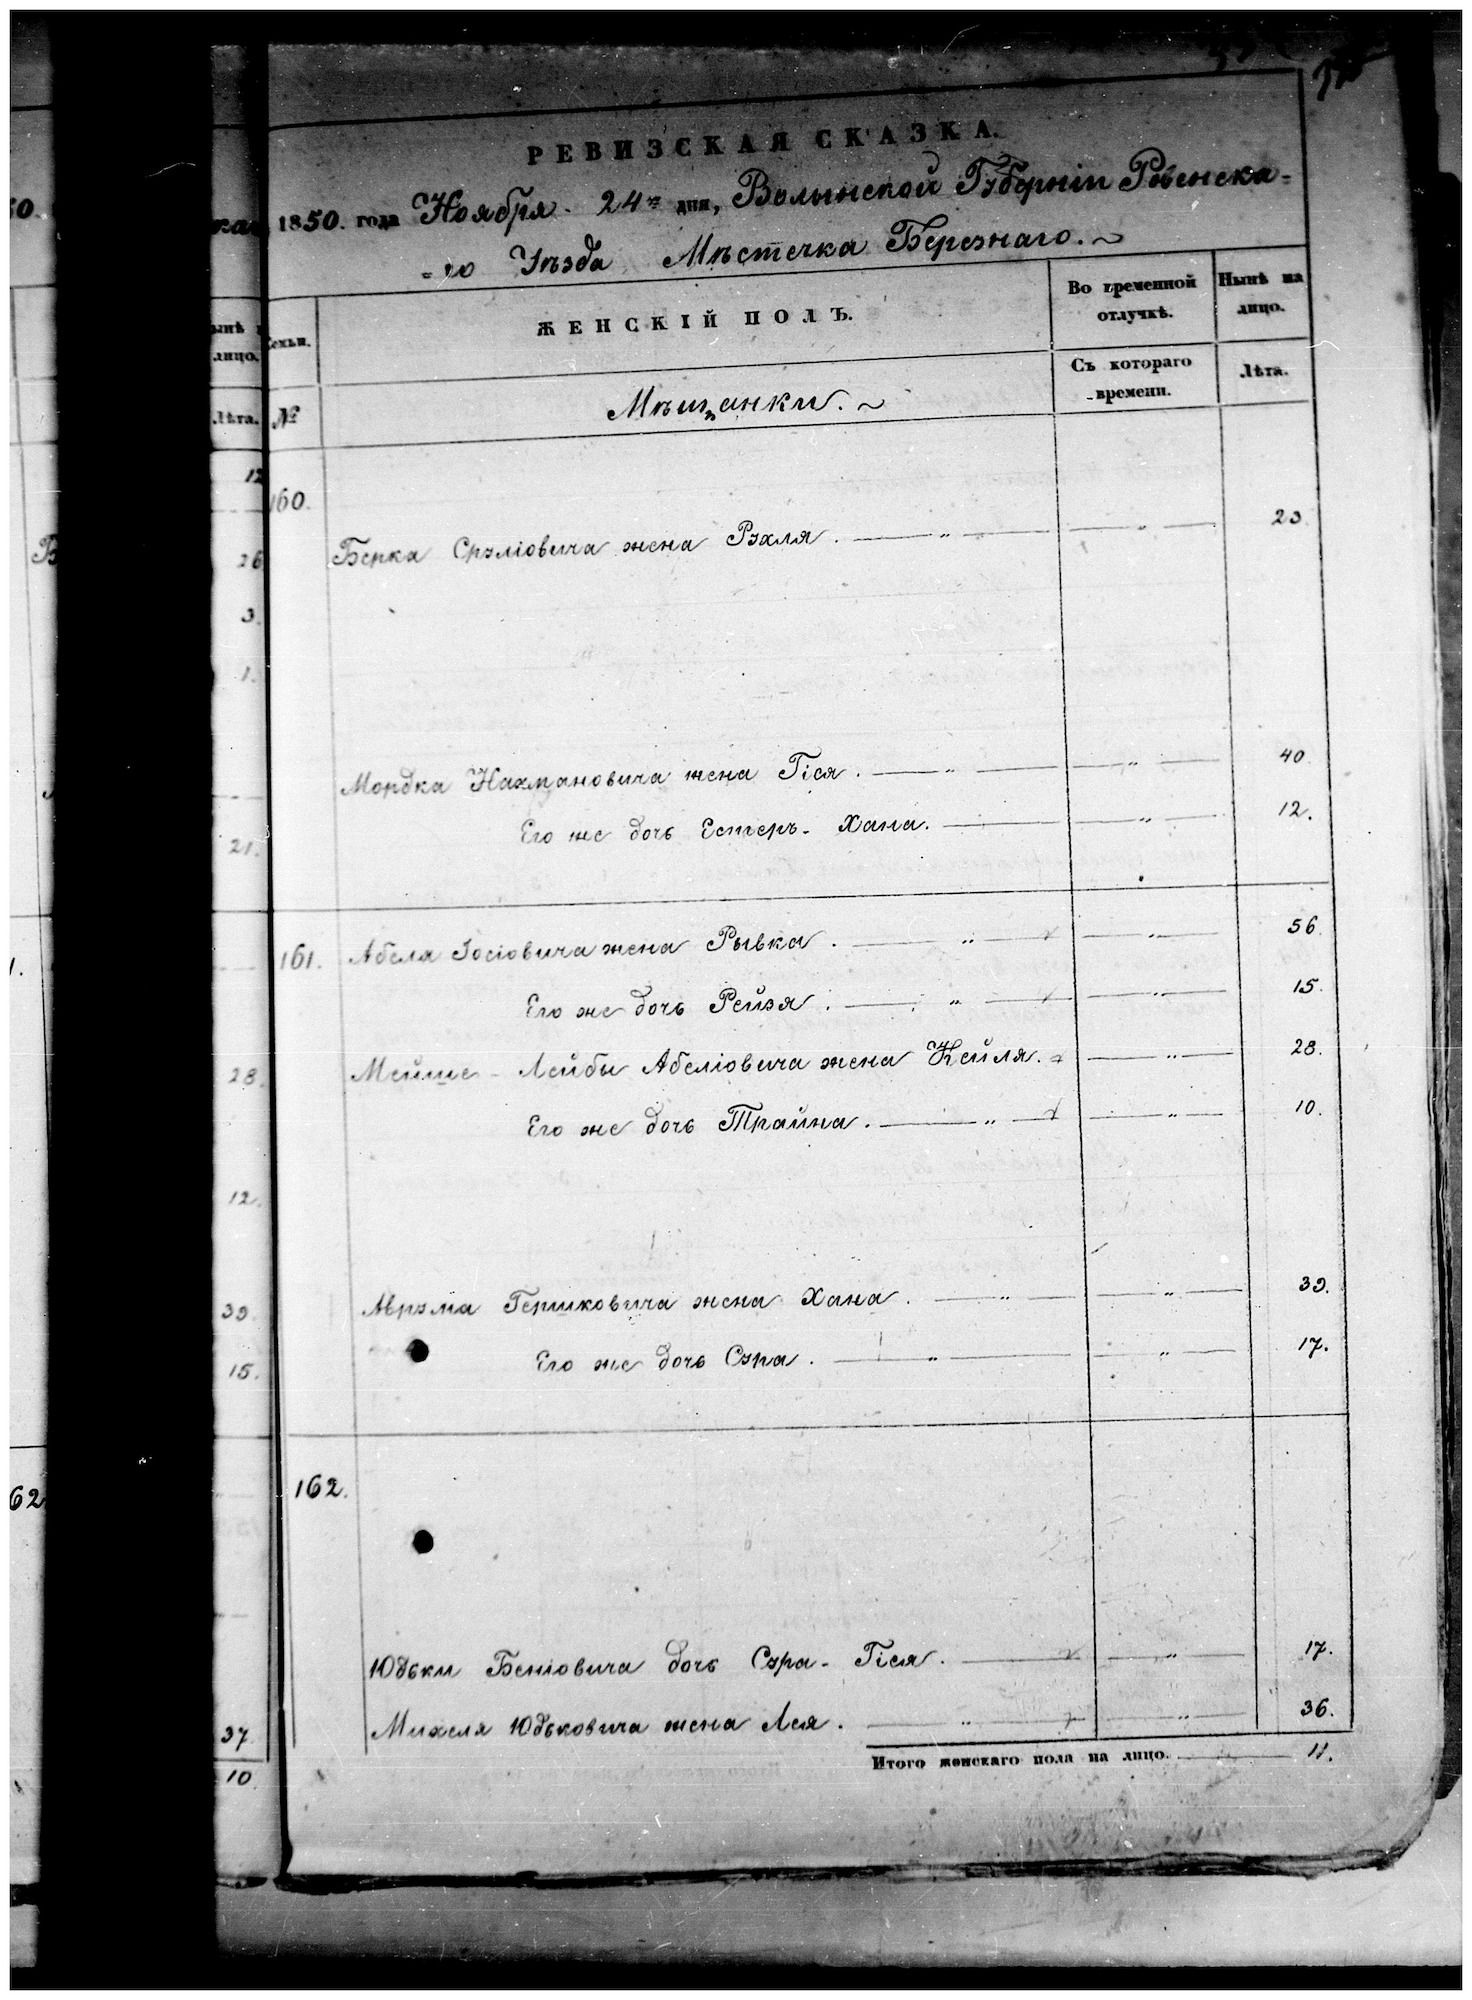 РЕВИЗСКАЯ СКАЗКА.
1850. года Ноября. 24го дня, Волынской Губерніи Ровенска-
=го Уѣзда Мѣстечка Березнаго.
Семьи. ЖЕНСКІЙ ПОЛЪ. Во временной отлучкѣ. Нынѣ на лицо.
№ Мѣщанки. Съ котораго времени. Лѣта.
160.
Берка Срэліовича жена Рэхля. — „ — — „ — 23.
Мордка Нахмановича жена Гіся. — „ — — „ — 40.
Его же дочь Естеръ-Хана. — — „ — 12.
161. Абеля Іосіовича жена Рывка. — „ — — „ — 56.
Его же дочь Рейзя. — „ — — „ — 15.
Мейше-Лейбы Абеліовича жена Кейля. — „ — 28.
Его же дочь Трайна. — „ — — „ — 10.
Аврэма Гершковича жена Хана. — „ — — „ — 39.
Его же дочь Сэра. — „ — — „ — 17.
162.
Юдьки Беніовича дочь Сэра-Гіся. — — „ — 17.
Михеля Юдьковича жена Лея. — „ — — „ — 36.
Итого женскаго пола на лицо. — 11.
ынѣ
лицо.
Лѣта.
12
26
3.
1.
21.
28.
12.
39.
15.
37.
10
62